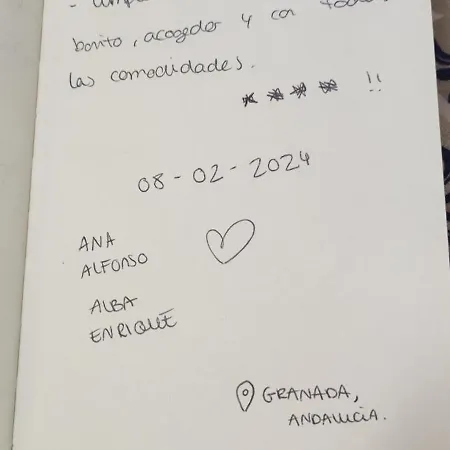 bonito, acogedor y con todas
las comodidades.
!!
08-02-2024
ANA
ALFONSO
ALBA
ENRIQUE
GRANADA,
ANDALUCIA.